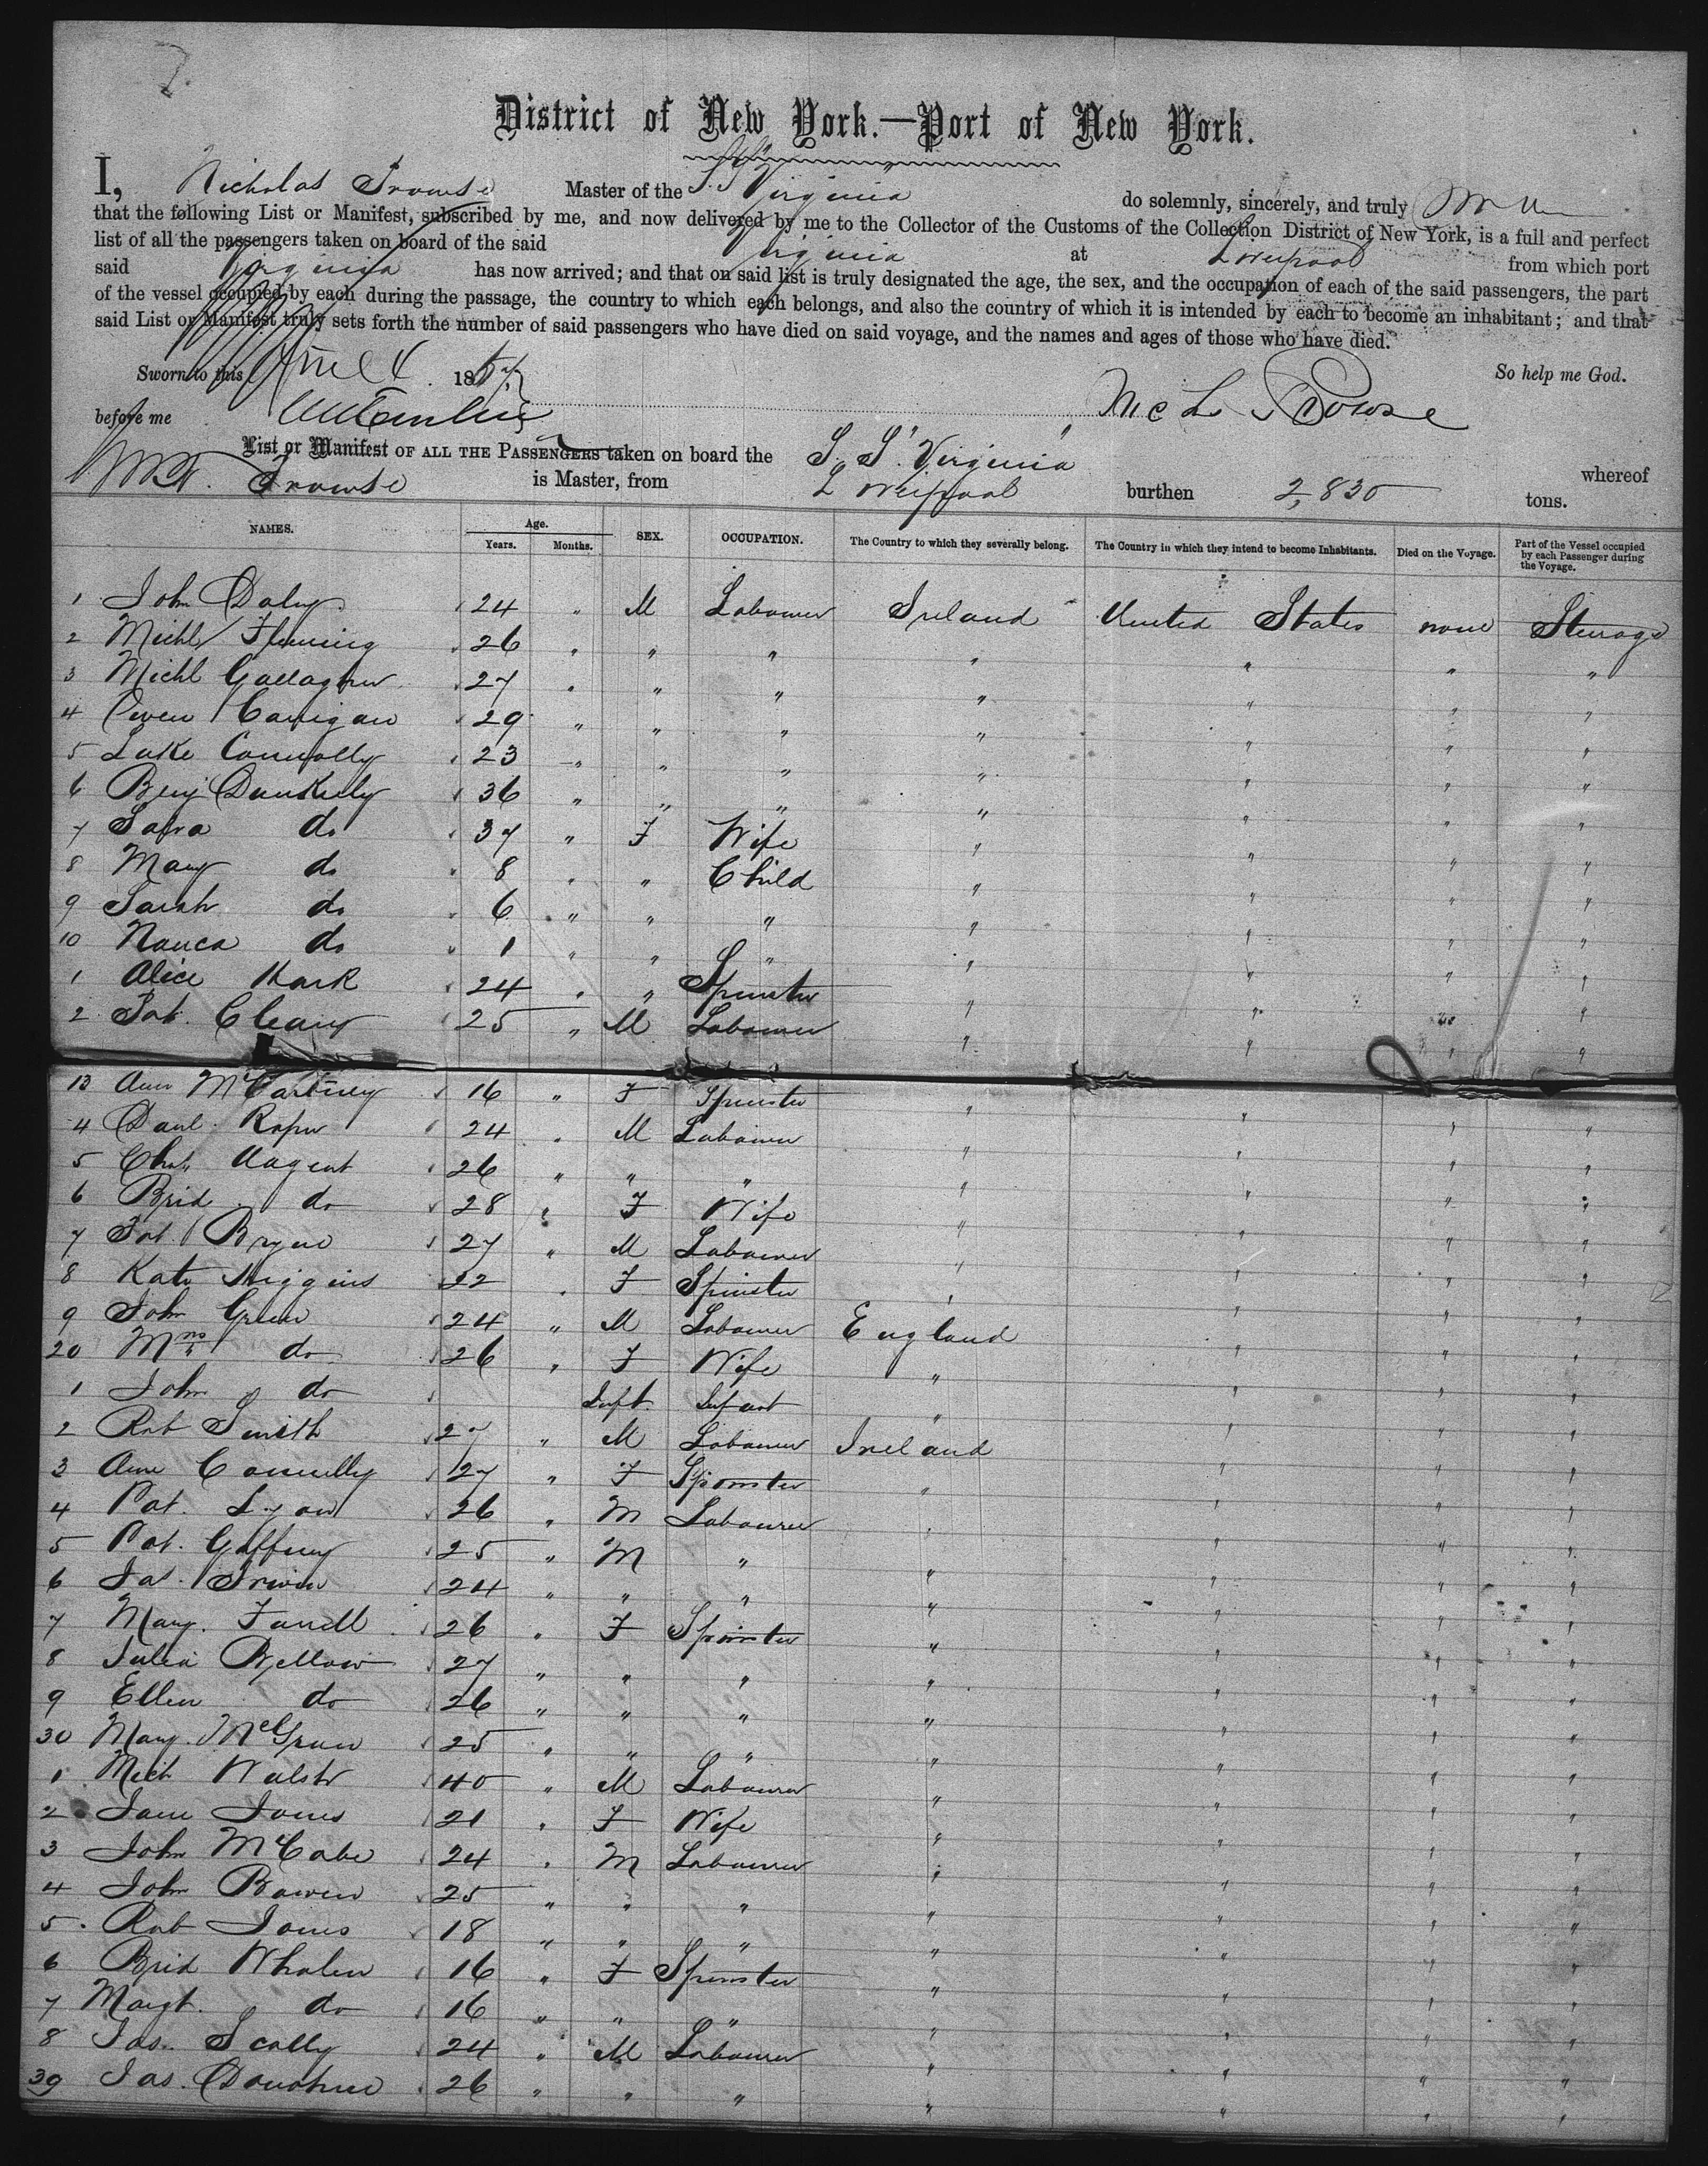 District of New York.—Port of New York.
I, Nicholas Prowse Master of the S.S. Virginia do solemnly, sincerely, and truly
that the following List or Manifest, subscribed by me, and now delivered by me to the Collector of the Customs of the Collection District of New York, is a full and perfect
list of all the passengers taken on board of the said Virginia at Liverpool from which port
said Virginia has now arrived; and that on said list is truly designated the age, the sex, and the occupation of each of the said passengers, the part
of the vessel occupied by each during the passage, the country to which each belongs, and also the country of which it is intended by each to become an inhabitant; and that
said List or Manifest truly sets forth the number of said passengers who have died on said voyage, and the names and ages of those who have died.
Sworn to this June 4 1867 So help me God.
before me Prowse
List or Manifest OF ALL THE PASSENGERS taken on board the S.S. Virginia whereof
Prowse is Master, from Liverpool burthen 2,830 tons.
NAMES. Age. Years. Months. SEX. OCCUPATION. The Country to which they severally belong. The Country in which they intend to become Inhabitants. Died on the Voyage. Part of the Vessel occupied by each Passenger during the Voyage.
1 John Daly 24 " M Labourer Ireland United States none Steerage
2 Michl Fleming 26 " " " " " " "
3 Michl Gallagher 27 " " " " " " "
4 Owen Carrigan 29 " " " " " " "
5 Luke Connolly 23 " " " " " " "
6 Benj Dunkerly 36 " " " " " " "
7 Sara do 37 " F Wife " " " "
8 Mary do 8 " " Child " " " "
9 Sarah do 6 " " " " " " "
10 do 1 " " " " " " "
1 Alice 24 " " Spinster " " " "
2 Pat. Cleary 25 " M Labourer " " " "
13 Ann McCartney 16 " F Spinster " " " "
4 Danl. Roper 24 " M Labourer " " " "
5 Chas Nugent 26 " " " " " " "
6 Brid do 28 " F Wife " " " "
7 Pat. Bryne 27 " M Labourer " " " "
8 Kate Higgins 22 " F Spinster " " " "
9 John Green 24 " M Labourer England " " "
20 Mrs do 26 " F Wife " " " "
1 John do Inft. Infant " " " "
2 Rob Smith 27 " M Labourer Ireland " " "
3 Ann Connelly 27 " F Spinster " " " "
4 Pat. Lyon 26 " M Labourer " " " "
5 Pat. Gaffney 25 " M " " " " "
6 Jas. Irwin 24 " " " " " " "
7 Mary. Farrell 26 " F Spinster " " " "
8 Julia Bellow 27 " " " " " " "
9 Ellen do 26 " " " " " " "
30 Mary. 25 " " " " " " "
1 Mich Walsh 40 " M Labourer " " " "
2 Jane Jones 21 " F Wife " " " "
3 John McCabe 24 " M Labourer " " " "
4 John Bowen 25 " " " " " " "
5 Rob Jones 18 " " " " " " "
6 Brid Whalen 16 " F Spinster " " " "
7 Margt. do 16 " " " " " " "
8 Jas. Scally 24 " M Labourer " " " "
39 Jas. Donohue 26 " " " " " " "